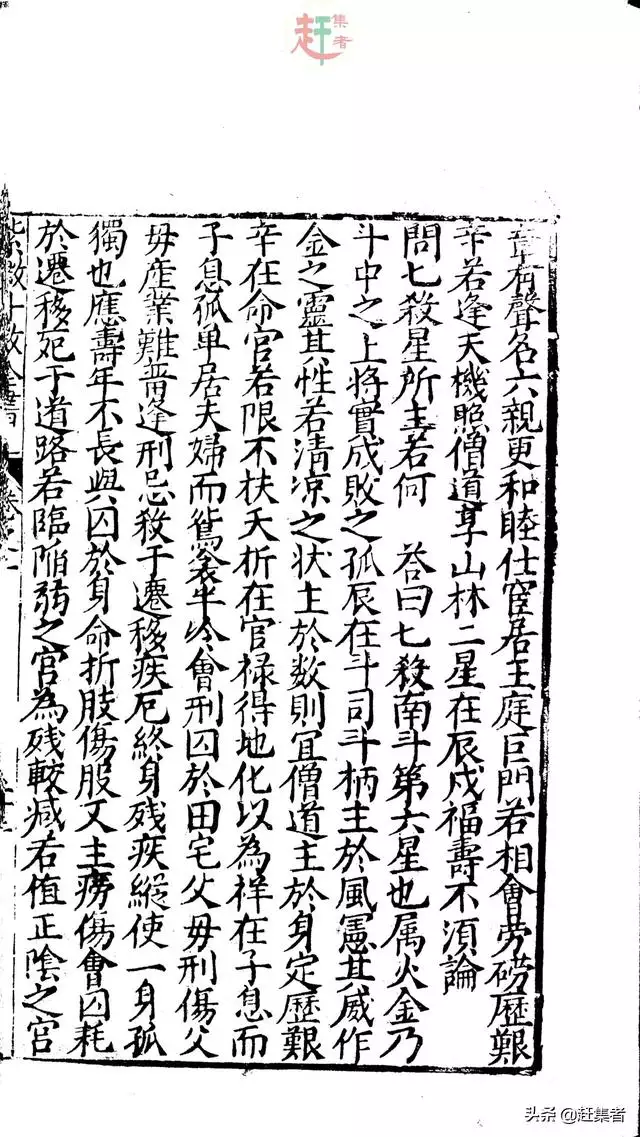 赶集者
章有聲名六親更和睦仕宦居王庭巨門若相會劳碌歷艱
辛若逢天機照僧道享山林二星在辰戍福壽不湏論
問七殺星所主若何 荅曰七殺南斗第六星也属火金乃
斗中之上將實成敗之孤辰在斗司斗柄主於風憲其威作
金之靈其性若清凉之状主於数則宜僧道主於身定歷艱
辛在命官若限不扶夭折在官禄得地化以為祥在子息而
子息孤单居夫婦而鴛衾半冷會刑囚於田宅父毋刑傷父
毋産業難畱逢刑忌殺于遷移疾厄終身残疾縱使一身孤
獨也應壽年不長與囚於身命折肱傷股又主癆傷會囚耗
於遷移死于道路若臨陥弱之官為残較减若值正陰之宮
紫微斗数全書 卷之一
头条 @赶集者